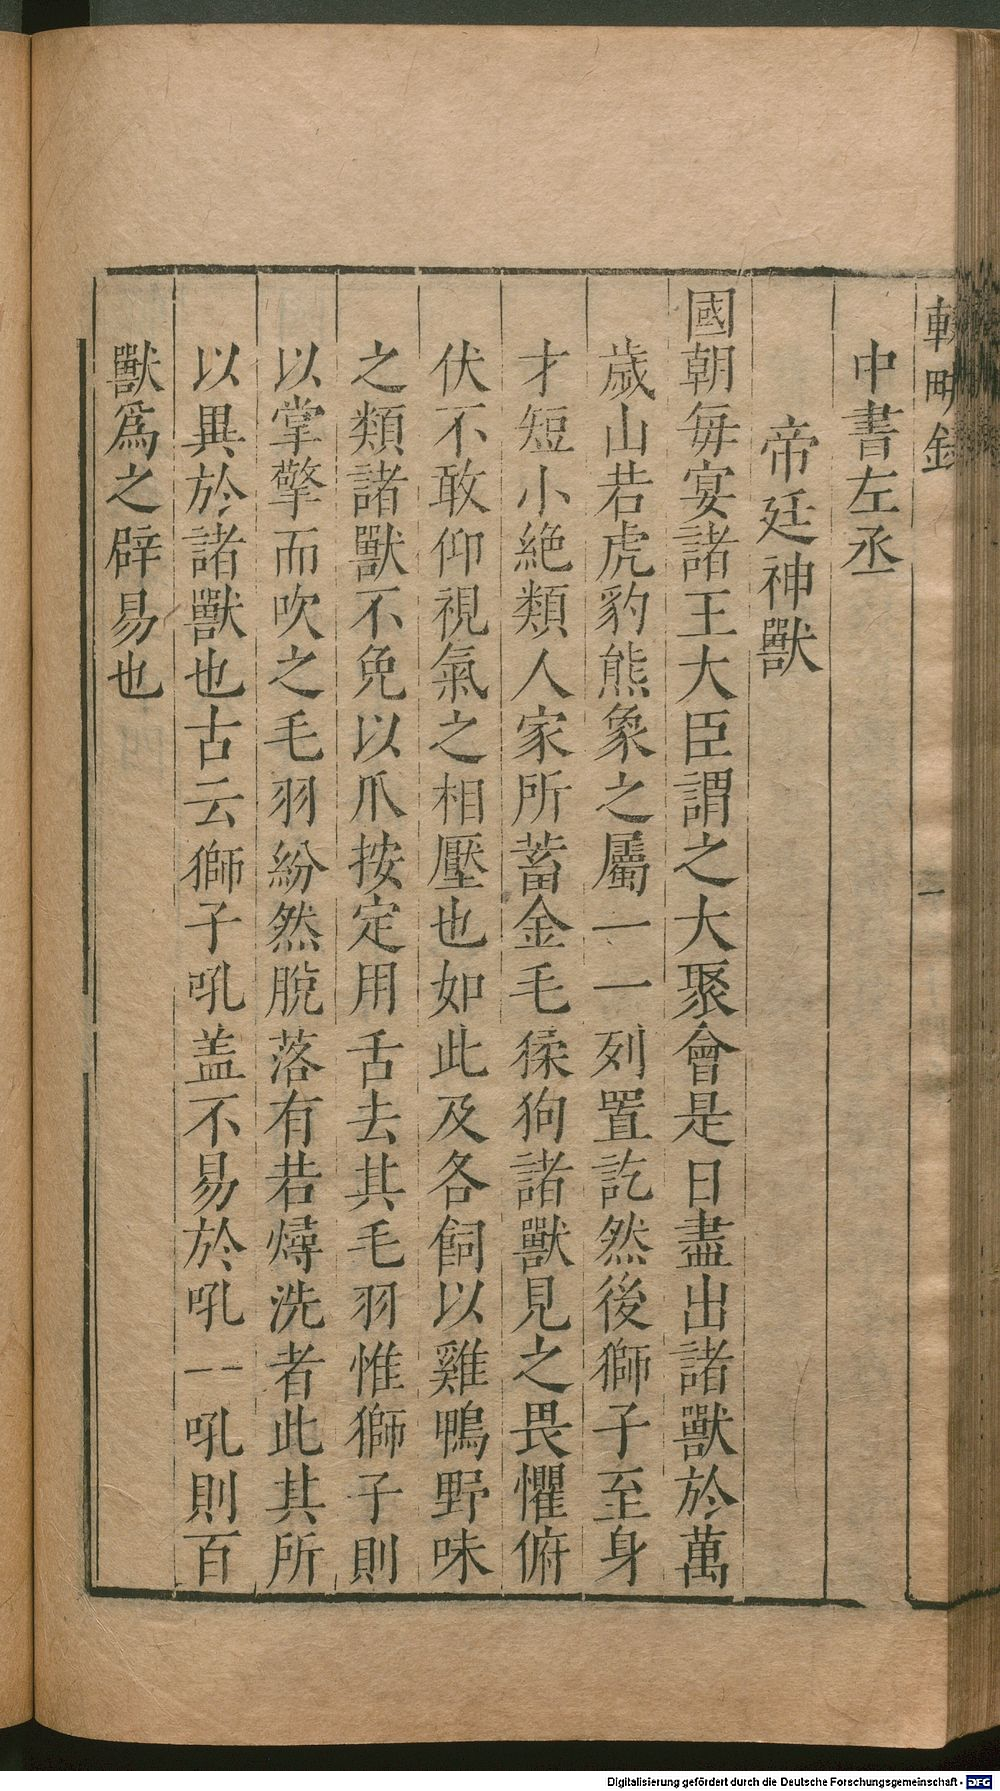 輟畊錄
中書左丞
帝廷神獸
國朝每宴諸王大臣謂之大聚會是日盡出諸獸於萬
歲山若虎豹熊象之屬一一列置訖然後獅子至身
才短小絶類人家所蓄金毛猱狗諸獸見之畏懼俯
伏不敢仰視氣之相壓也如此及各飼以雞鴨野味
之類諸獸不免以爪按定用舌去其毛羽惟獅子則
以掌擎而吹之毛羽紛然脫落有若燖洗者此其所
以異於諸獸也古云獅子吼盖不易於吼一吼則百
獸爲之辟易也
一
Digitalisierung gefördert durch die Deutsche Forschungsgemeinschaft - DFG